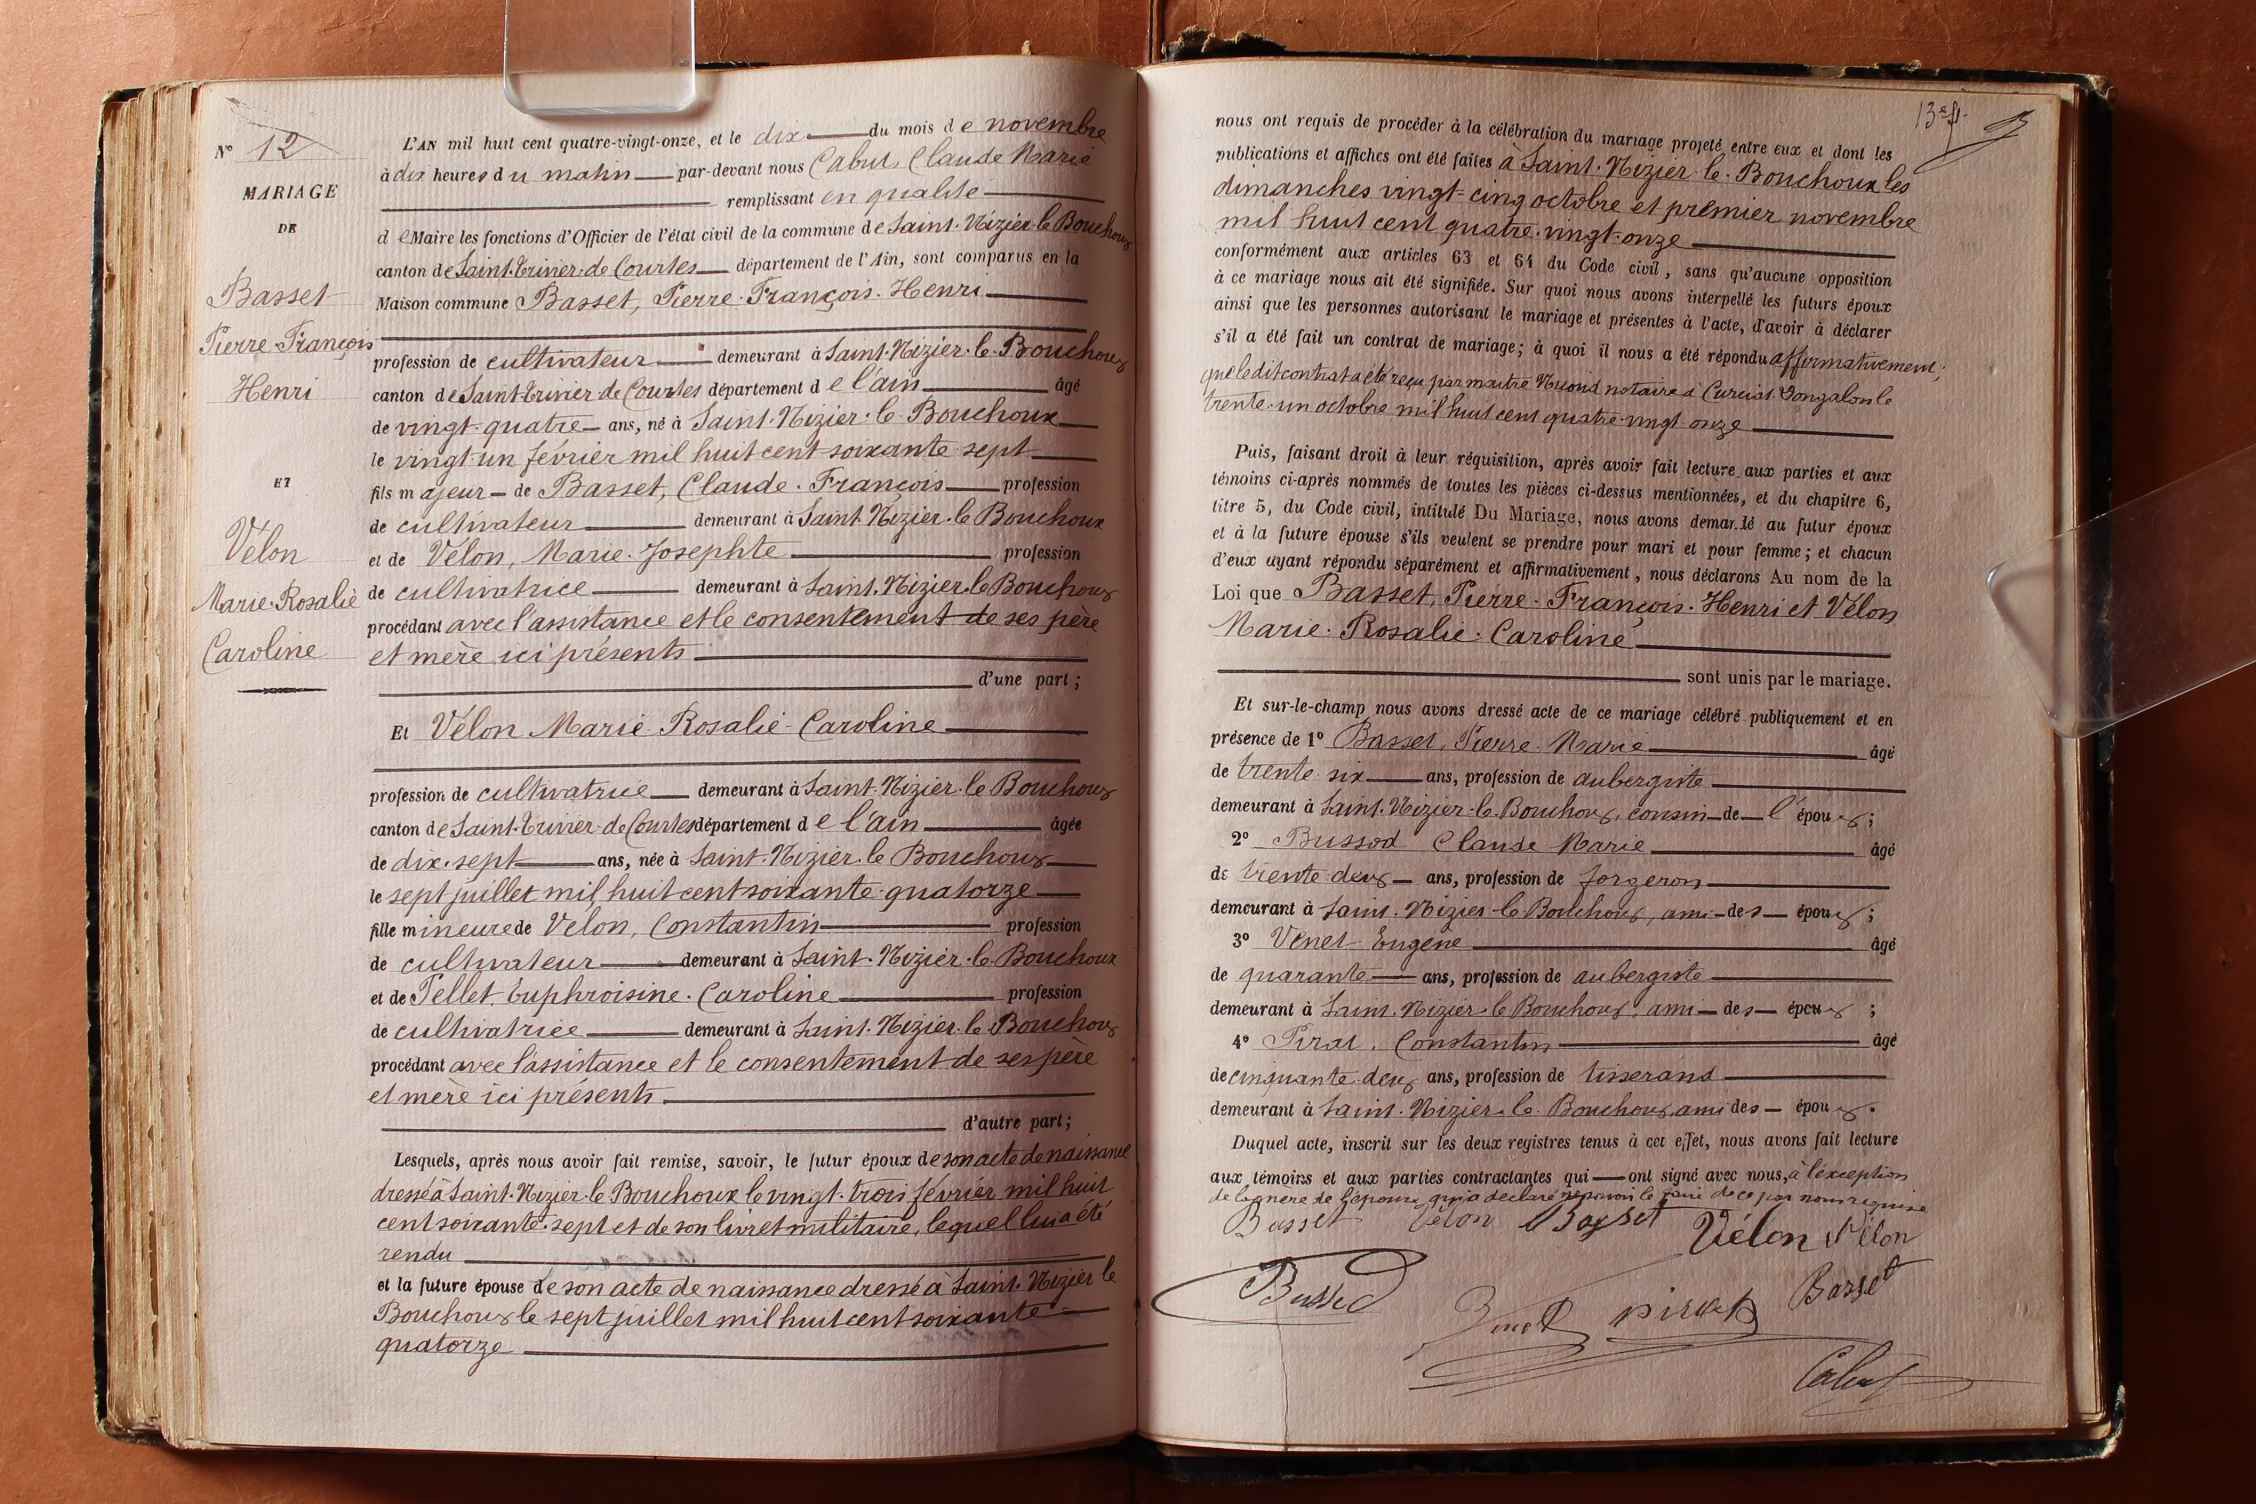 N° 12
MARIAGE
DE
Basset
Pierre-François
Henri
ET
Vélon
Marie-Rosalie
Caroline
L'AN mil huit cent quatre-vingt-onze, et le dix du mois de novembre
à dix heures du matin par-devant nous Cabut Claude Marie
remplissant en qualité
de Maire les fonctions d'Officier de l'état civil de la commune de Saint-Nizier-le-Bouchoux
canton de Saint-Trivier-de-Courtes département de l'Ain, sont comparus en la
Maison commune Basset, Pierre-François-Henri
profession de cultivateur demeurant à Saint-Nizier-le-Bouchoux
canton de Saint-Trivier-de-Courtes département de l'ain âgé
de vingt-quatre ans, né à Saint-Nizier-le-Bouchoux
le vingt-un février mil huit cent soixante-sept
fils majeur de Basset, Claude-François profession
de cultivateur demeurant à Saint-Nizier-le-Bouchoux
et de Vélon, Marie-Josephte profession
de cultivatrice demeurant à Saint-Nizier-le-Bouchoux
procédant avec l'assistance et le consentement de ses père
et mère ici présents
d'une part ;
Et Vélon Marie-Rosalie-Caroline
profession de cultivatrice demeurant à Saint-Nizier-le-Bouchoux
canton de Saint-Trivier-de-Courtes département de l'ain âgée
de dix-sept ans, née à Saint-Nizier-le-Bouchoux
le sept juillet mil huit cent soixante-quatorze
fille mineure de Vélon, Constantin profession
de cultivateur demeurant à Saint-Nizier-le-Bouchoux
et de Pellet, Euphroisine-Caroline profession
de cultivatrice demeurant à Saint-Nizier-le-Bouchoux
procédant avec l'assistance et le consentement de ses père
et mère ici présents
d'autre part ;
Lesquels, après nous avoir fait remise, savoir, le futur époux de son acte de naissance
dressé à Saint-Nizier-le-Bouchoux le vingt-trois février mil huit
cent soixante-sept et de son livret militaire, lequel lui a été
rendu
et la future épouse de son acte de naissance dressé à Saint-Nizier le
Bouchoux le sept juillet mil huit cent soixante-
quatorze
13e f.
nous ont requis de procéder à la célébration du mariage projeté entre eux et dont les
publications et affiches ont été faites à Saint-Nizier-le-Bouchoux les
dimanches vingt-cinq octobre et premier novembre
mil huit cent quatre-vingt-onze
conformément aux articles 63 et 64 du Code civil, sans qu'aucune opposition
à ce mariage nous ait été signifiée. Sur quoi nous avons interpellé les futurs époux
ainsi que les personnes autorisant le mariage et présentes à l'acte, d'avoir à déclarer
s'il a été fait un contrat de mariage ; à quoi il nous a été répondu affirmativement ;
que le dit contrat a été reçu par maitre notaire à Curciat-Dongalon le
trente-un octobre mil huit cent quatre-vingt-onze
Puis, faisant droit à leur réquisition, après avoir fait lecture aux parties et aux
témoins ci-après nommés de toutes les pièces ci-dessus mentionnées, et du chapitre 6,
titre 5, du Code civil, intitulé Du Mariage, nous avons demandé au futur époux
et à la future épouse s'ils veulent se prendre pour mari et pour femme ; et chacun
d'eux ayant répondu séparément et affirmativement, nous déclarons Au nom de la
Loi que Basset, Pierre-François-Henri et Vélon
Marie-Rosalie-Caroline
sont unis par le mariage.
Et sur-le-champ nous avons dressé acte de ce mariage célébré publiquement et en
présence de 1° Basset, Pierre-Marie âgé
de trente-six ans, profession de aubergiste
demeurant à Saint-Nizier-le-Bouchoux, cousin de l'époux ;
2° Bussod Claude Marie âgé
de trente-deux ans, profession de forgeron
demeurant à Saint-Nizier-le-Bouchoux, ami des époux ;
3° Venet Eugène âgé
de quarante ans, profession de aubergiste
demeurant à Saint-Nizier-le-Bouchoux, ami des époux ;
4° Pirat, Constantin âgé
de cinquante-deux ans, profession de tisserand
demeurant à Saint-Nizier-le-Bouchoux, ami des époux.
Duquel acte, inscrit sur les deux registres tenus à cet effet, nous avons fait lecture
aux témoins et aux parties contractantes qui ont signé avec nous, à l'exception
de la mère de l'épouse qui a déclaré ne pouvoir le faire de ce par nous requise
Basset Vélon Basset Vélon Vélon
Bussod Venet Pirat Basset
Cabut